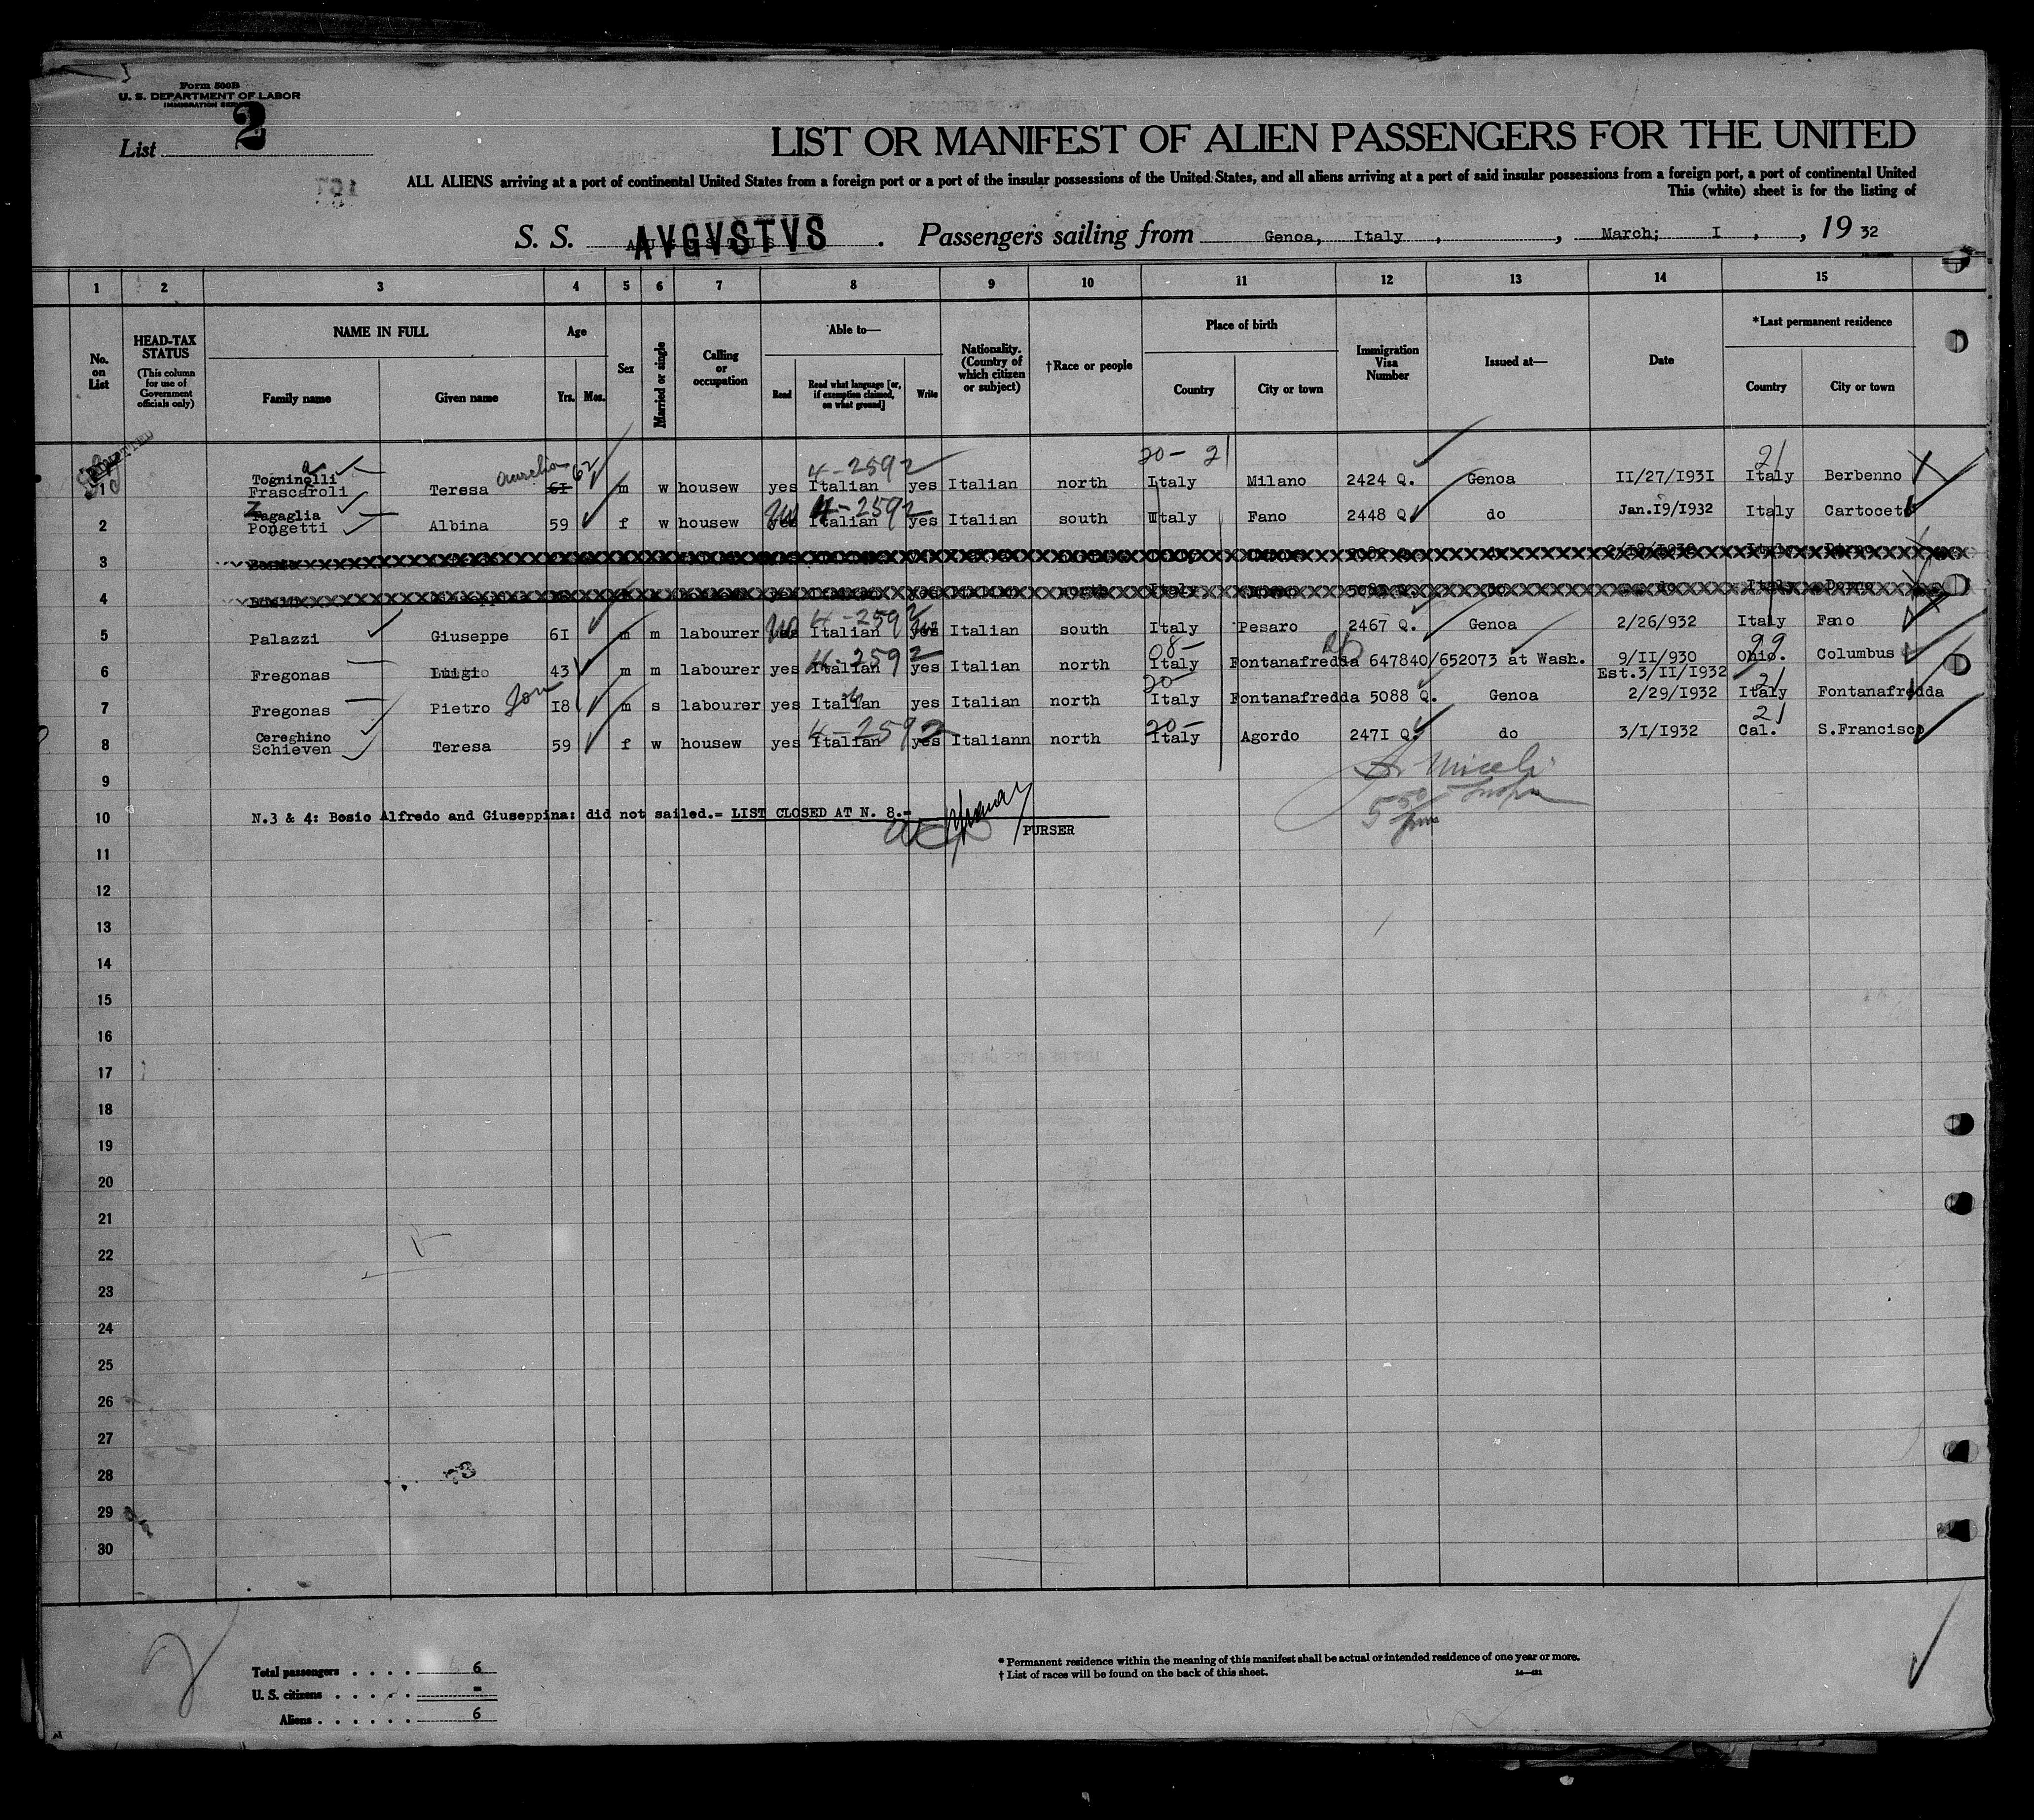 Form 500B
U. S. DEPARTMENT OF LABOR
IMMIGRATION SERVICE
List 2
LIST OR MANIFEST OF ALIEN PASSENGERS FOR THE UNITED
ALL ALIENS arriving at a port of continental United States from a foreign port or a port of the insular possessions of the United States, and all aliens arriving at a port of said insular possessions from a foreign port, a port of continental United
This (white) sheet is for the listing of
S. S. AVGVSTVS . Passengers sailing from Genoa, Italy , , March; I , , 19 32
1 2 3 4 5 6 7 8 9 10 11 12 13 14 15
No. on List
HEAD-TAX STATUS
(This column for use of Government officials only)
NAME IN FULL
Family name
Given name
Age
Yrs. Mos.
Sex
Married or single
Calling or occupation
Able to—
Read
Read what language [or, if exemption claimed, on what ground]
Write
Nationality. (Country of which citizen or subject)
†Race or people
Place of birth
Country
City or town
Immigration Visa Number
Issued at—
Date
*Last permanent residence
Country
City or town
4-2592 20- 21 21
Togninelli Aurelia 62
1 Frascaroli Teresa 61 m w housew yes Italian yes Italian north Italy Milano 2424 Q. Genoa II/27/I93I Italy Berbenno
Zagaglia 4-2592
2 Pongetti Albina 59 f w housew yes Italian yes Italian south Italy Fano 2448 Q. do Jan.I9/I932 Italy Cartoceto
3
4
4-2592
5 Palazzi Giuseppe 6I m m labourer yes Italian yes Italian south Italy Pesaro 2467 Q. Genoa 2/26/932 Italy Fano
4-2592 08- 99
6 Fregonas Luigi 43 m m labourer yes Italian yes Italian north Italy Fontanafredda 647840/652073 at Wash. 9/II/930 Ohio. Columbus
Est.3/II/I932
20 21
7 Fregonas Pietro Son I8 m s labourer yes Italian yes Italian north Italy Fontanafredda 5088 Q. Genoa 2/29/I932 Italy Fontanafredda
Cereghino 4-2592 20- 21
8 Schieven Teresa 59 f w housew yes Italian yes Italiann north Italy Agordo 247I Q. do 3/I/I932 Cal. S.Francisco
9
10 N.3 & 4: Bosio Alfredo and Giuseppina: did not sailed.= LIST CLOSED AT N. 8.=
PURSER
11
12
13
14
15
16
17
18
19
20
21
22
23
24
25
26
27
28
29
30
Total passengers . . . . 6
U. S. citizens . . . . . =
Aliens . . . . . . 6
* Permanent residence within the meaning of this manifest shall be actual or intended residence of one year or more.
† List of races will be found on the back of this sheet.
14—421